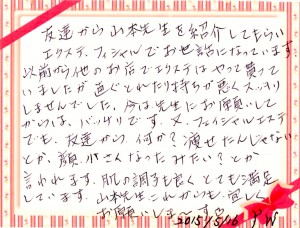 友達から山本先生を紹介してもらい
エステ、フェイシャルでお世話になっています
以前から他のお店でエステはやって貰って
いましたが直ぐとれたり持ちが悪くスッリ
しませんでした。今は先生にお願いして
からは、バッチリです。又、フェイシャルエステ
でも、友達から、何か？痩せたんじゃない
とか、顔、小さくなったみたい？とか
言われます。肌の調子も良くとても満足
しています。山本先生これからも宜しく
お願いします
2015/5/16